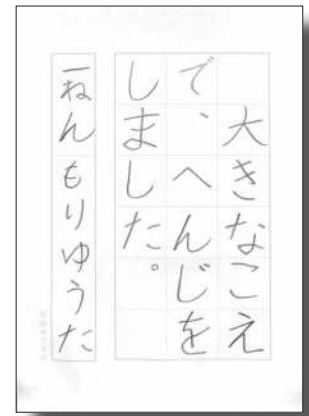 大きなこえ
で、へんじを
しました。
一ねん もりゆうた